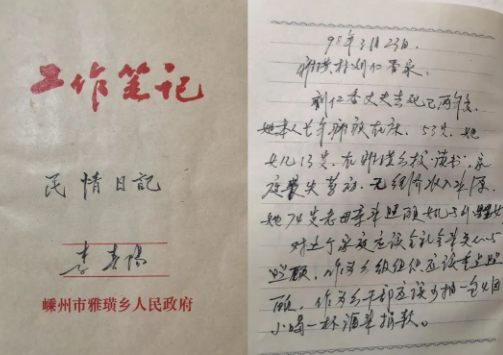 工作笔记
民情日記
嵊州市雅璜乡人民政府
98年3月23日。
雅璜村刘仁香家。
刘仁香丈夫去世已两年多,
她本人长年瘫痪在床,53岁,她
女儿13岁,在雅璜乡校读书,家
庭丧失劳力,无经济收入来源,
她74岁老母亲来照顾女儿
对这个家庭应该全社会来关心与
照顾,作为乡级组织应该重点照
顾,作为乡干部应该少抽一包烟
少喝一杯酒来捐款。